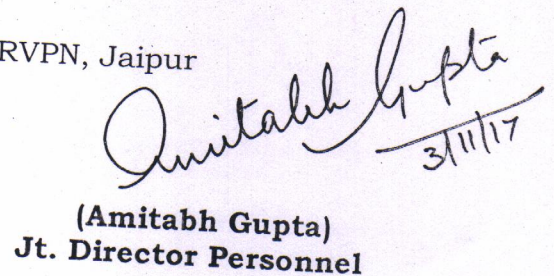 RVPN, Jaipur
Amitabh Gupta
3/11/17
(Amitabh Gupta)
Jt. Director Personnel